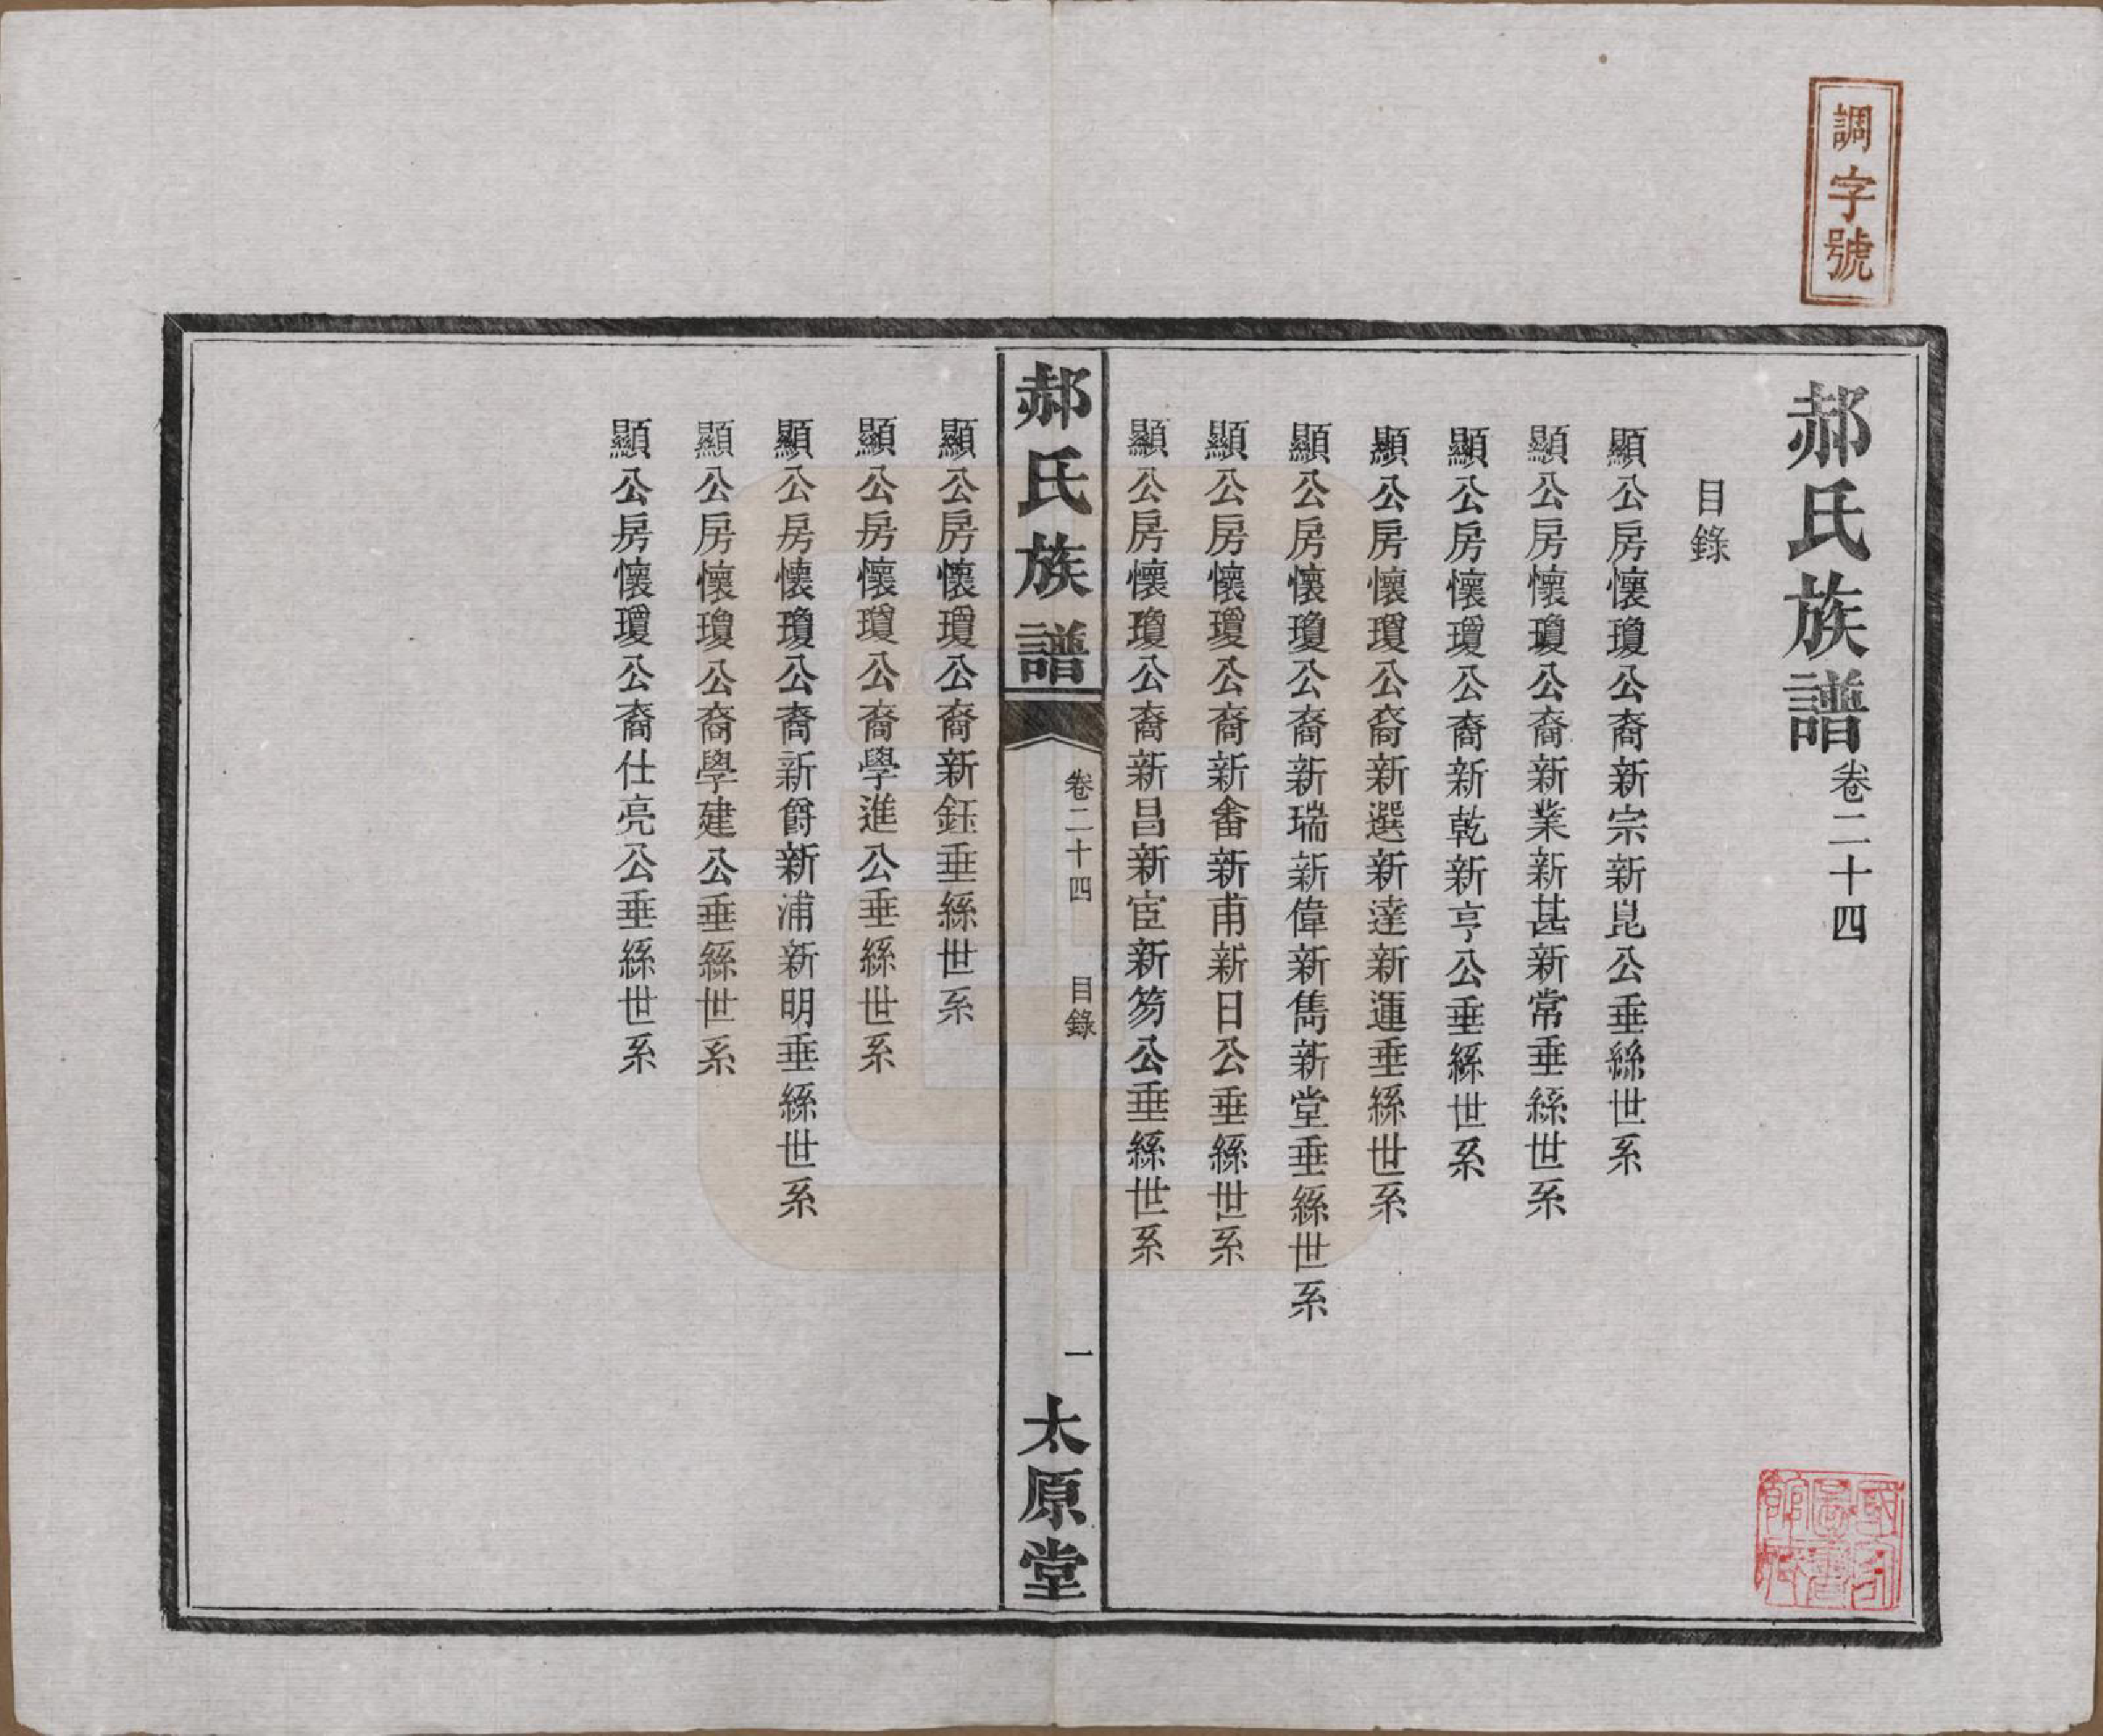 調字號
郝氏族譜卷二十四
目錄
顯公房懷瓊公裔新宗新崑公垂絲世系
顯公房懷瓊公裔新業新甚新常垂絲世系
顯公房懷瓊公裔新乾新亨公垂絲世系
顯公房懷瓊公裔新選新達新運垂絲世系
顯公房懷瓊公裔新瑞新偉新雋新堂垂絲世系
顯公房懷瓊公裔新畬新甫新日公垂絲世系
顯公房懷瓊公裔新昌新宦新笏公垂絲世系
郝氏族譜 卷二十四 目錄 一 太原堂
顯公房懷瓊公裔新鈺垂絲世系
顯公房懷瓊公裔學進公垂絲世系
顯公房懷瓊公裔新爵新浦新明垂絲世系
顯公房懷瓊公裔學建公垂絲世系
顯公房懷瓊公裔仕亮公垂絲世系
國家圖書館藏